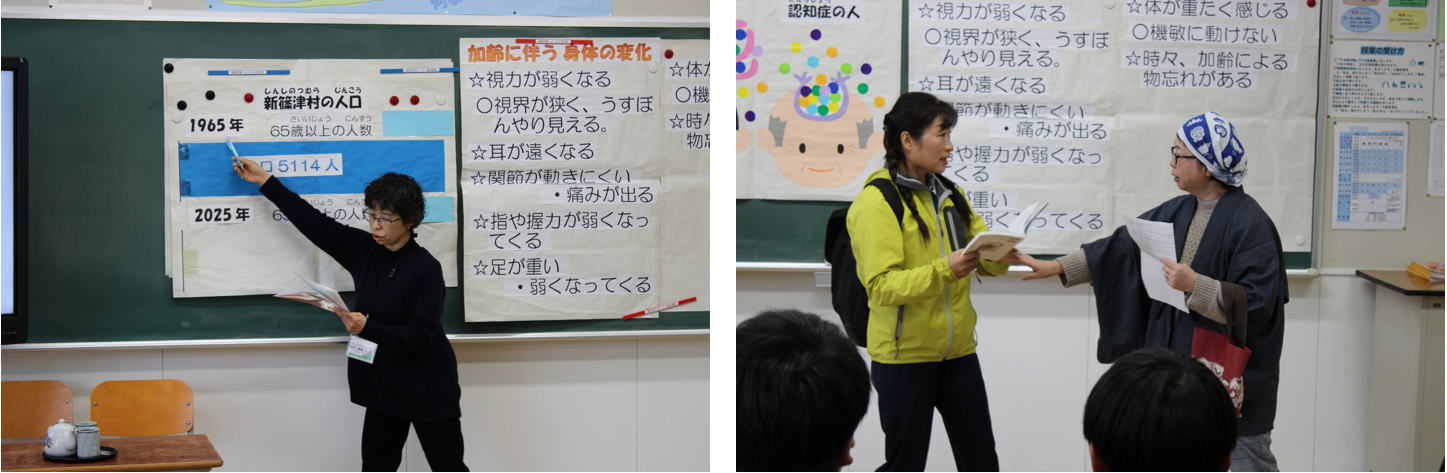 しんしのつむら じんこう
新篠津村の人口
1965年
さいいじょう にんずう
65歳以上の人数
5114人
2025年
加齢に伴う 身体の変化
☆視力が弱くなる
○視界が狭く、うすぼ
んやり見える。
☆耳が遠くなる
☆関節が動きにくい
・痛みが出る
☆指や握力が弱くなっ
てくる
☆足が重い
・弱くなってくる
☆体が
○機
☆時々
物忘
認知症の人
☆視力が弱くなる
○視界が狭く、うすぼ
んやり見える。
☆耳が遠くなる
関節が動きにくい
・痛みが出る
指や握力が弱くなっ
くる
が重い
弱くなってくる
☆体が重たく感じる
○機敏に動けない
☆時々、加齢による
物忘れがある
授業の受け方